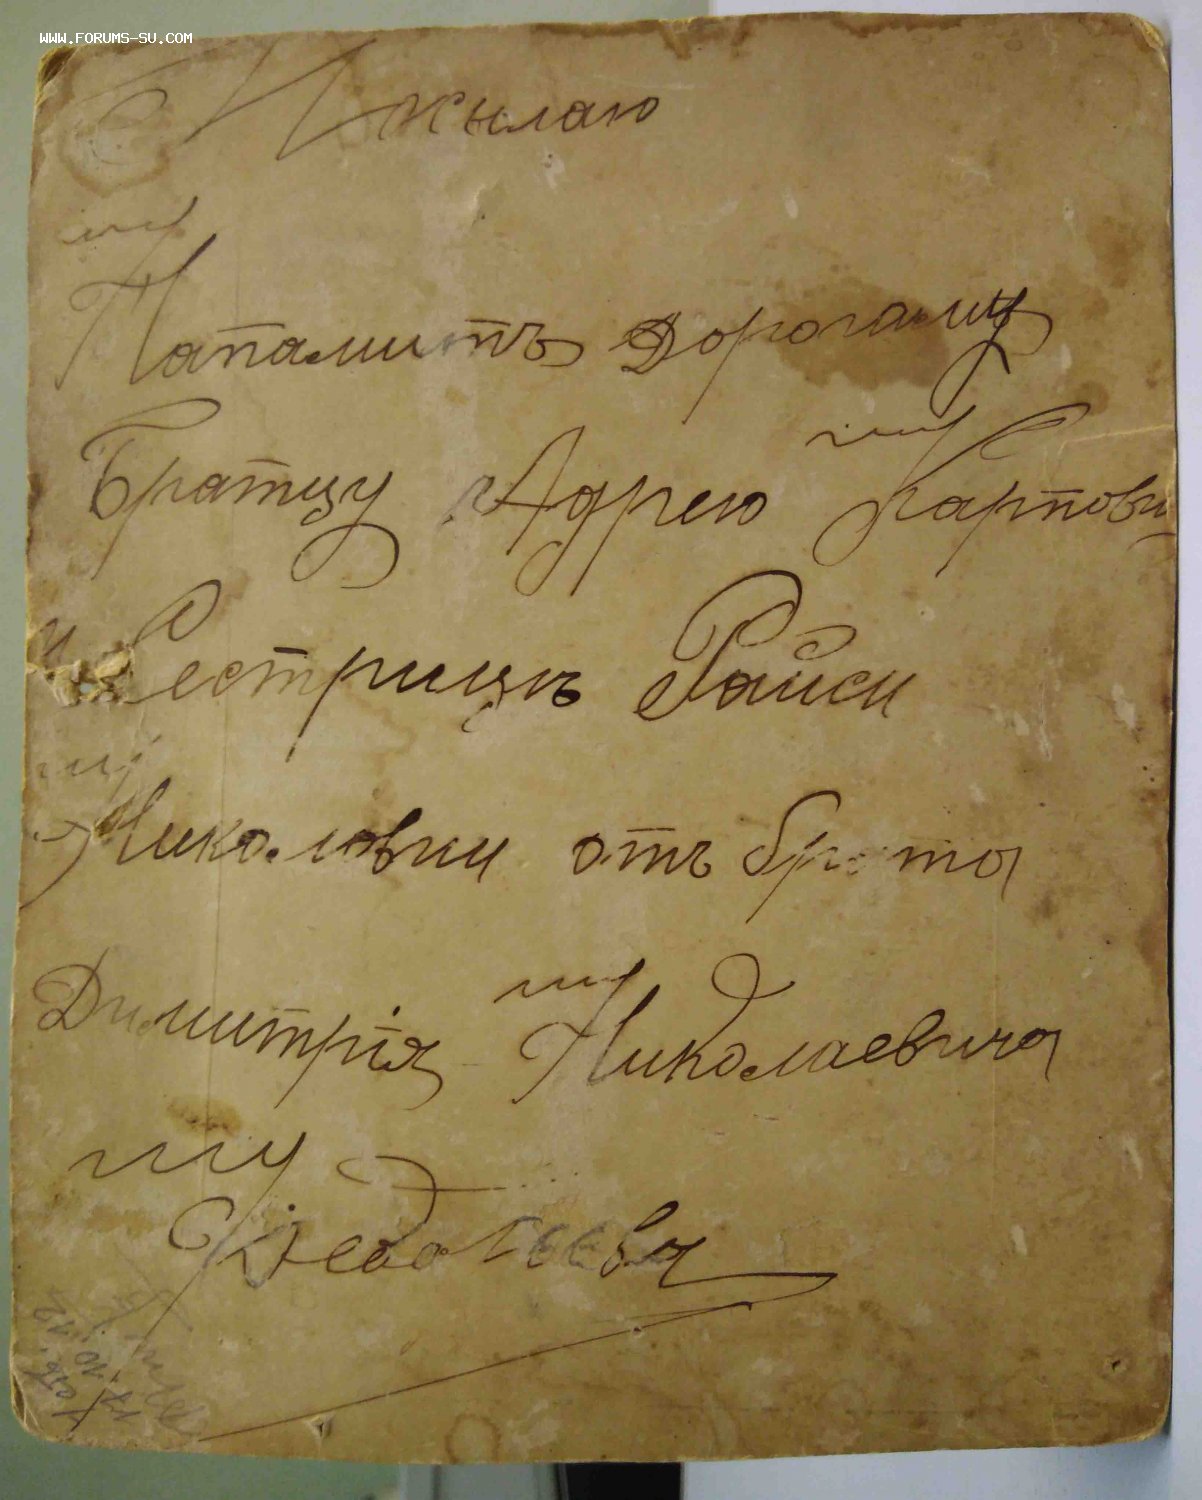 WWW.FORUMS-SU.COM
Псылаю
Напамить Дорогаму
Братцу Адрею Карпови
и Сестрицъ Раиси
Николовни отъ брата
Димитрія Николаевича
Федотеева